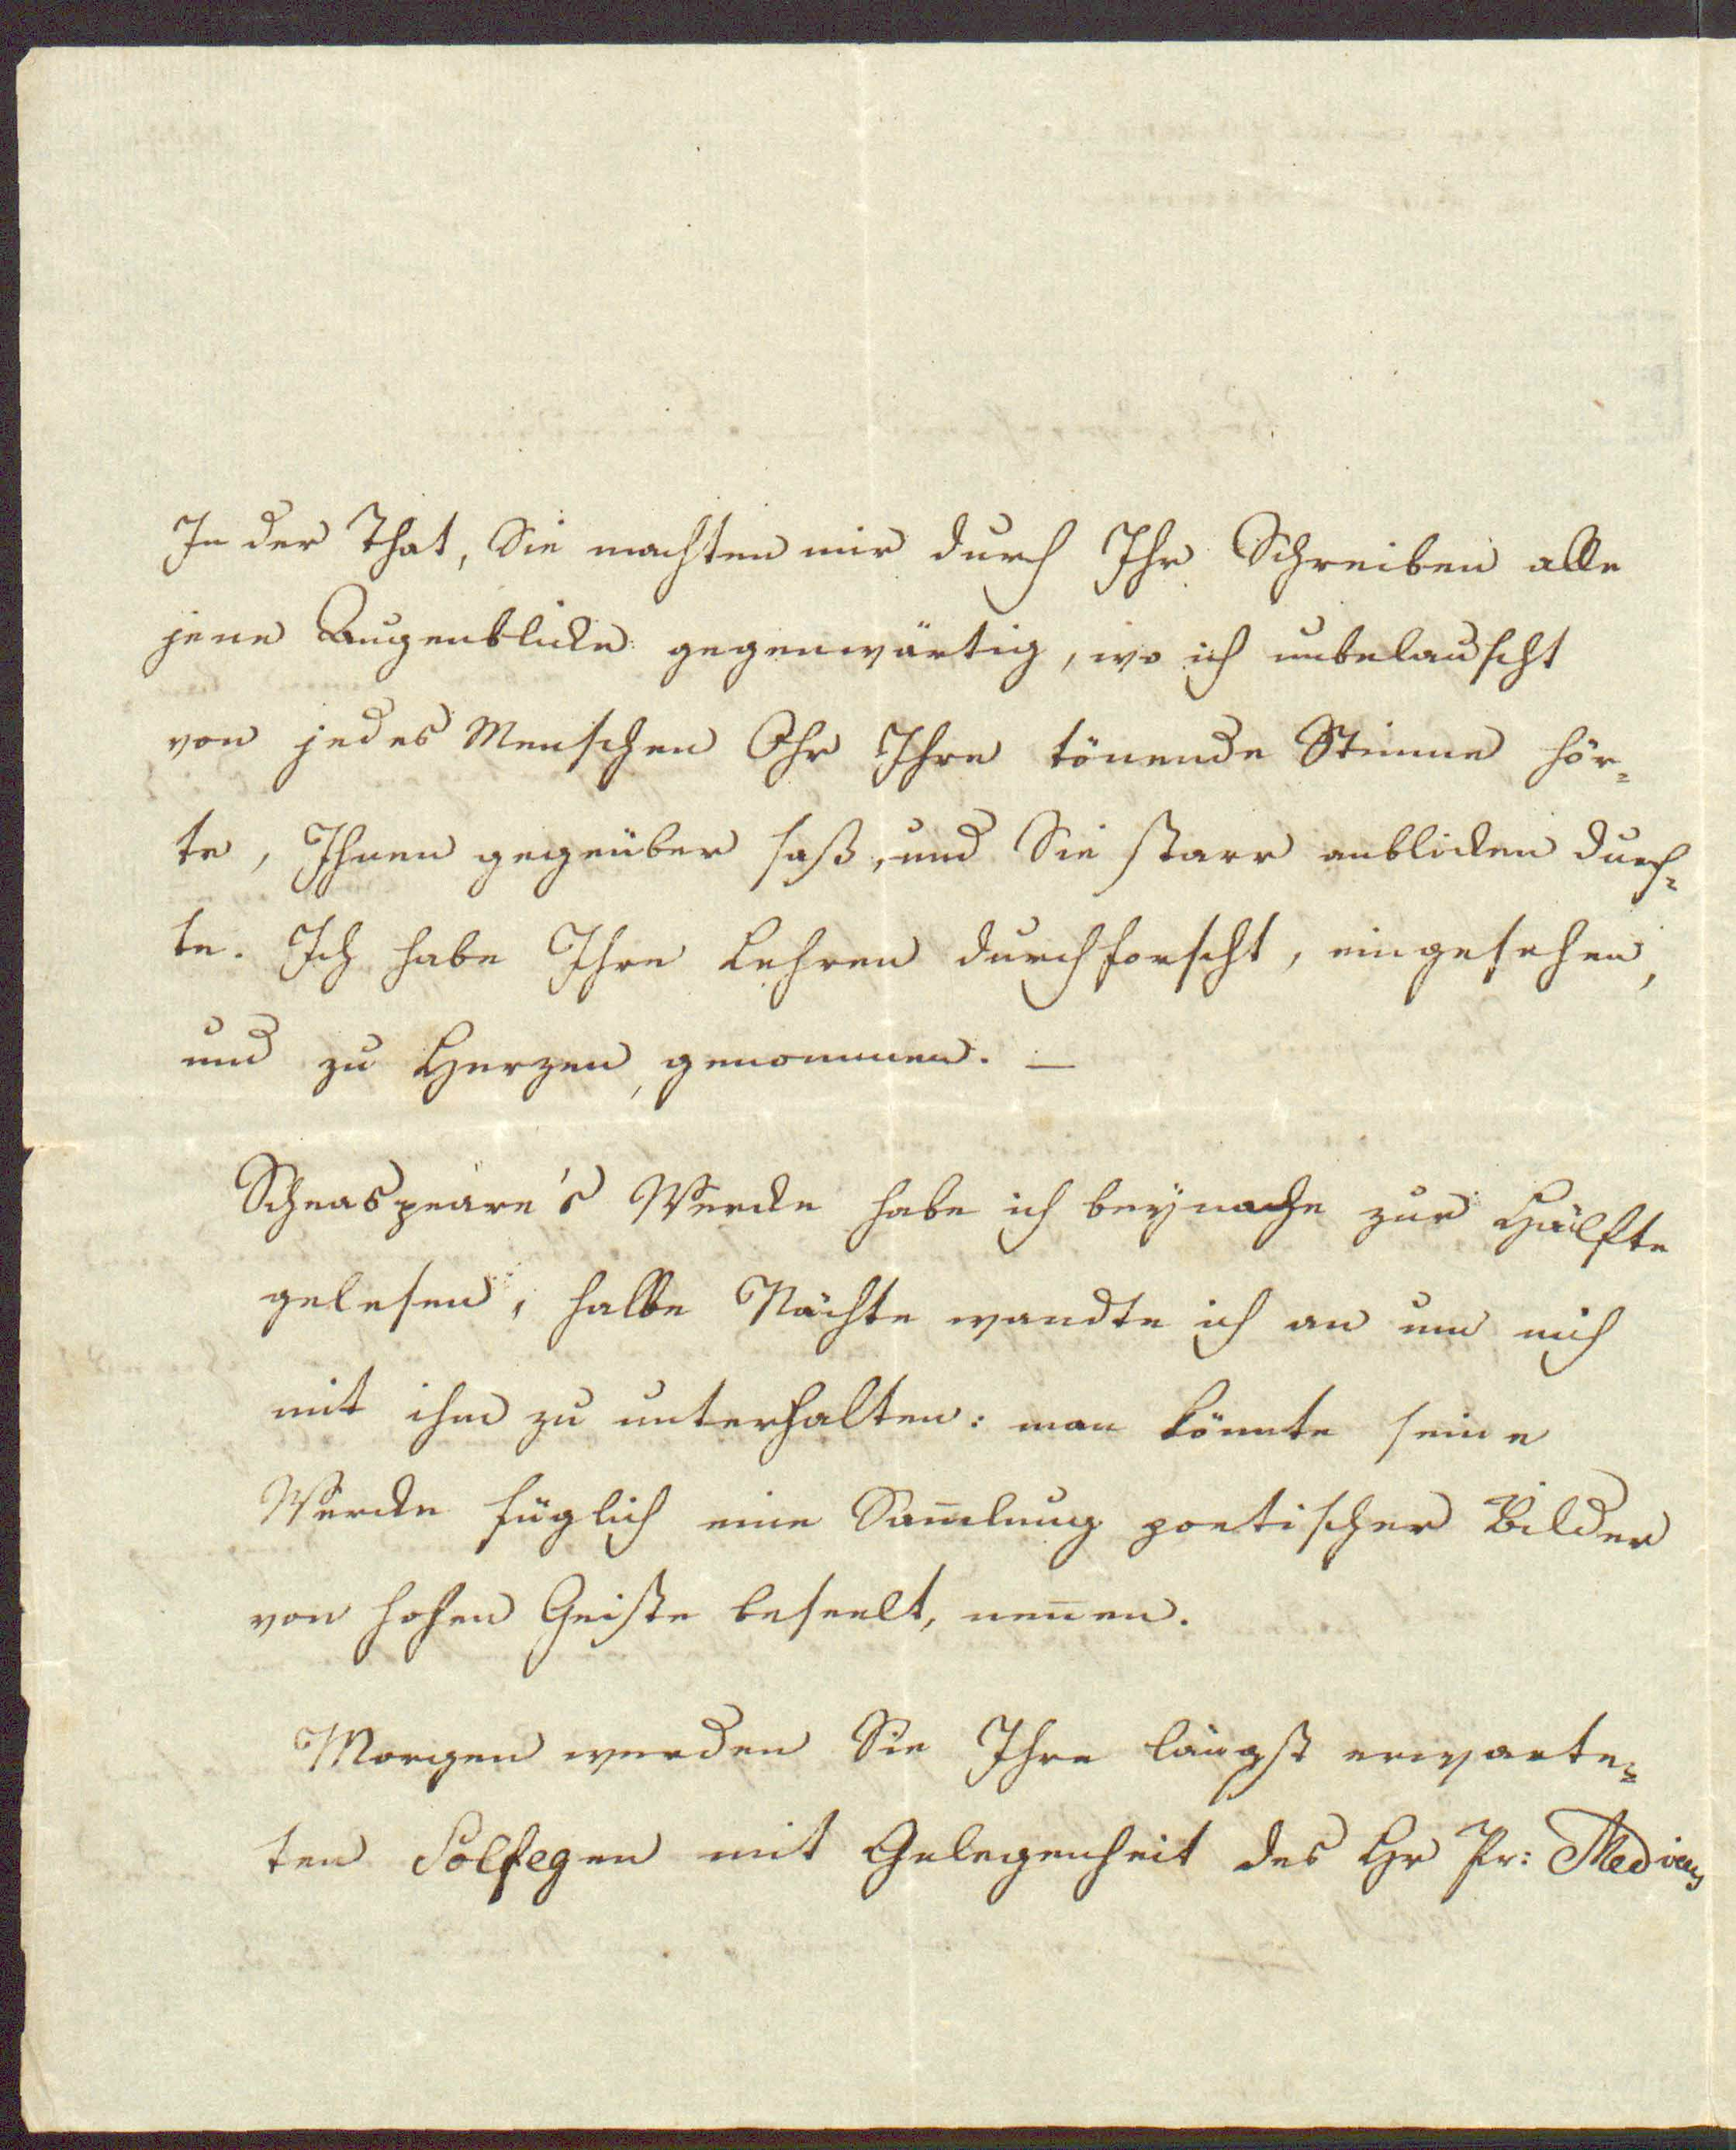 In der That, Sie machten mir durch Ihr Schreiben alle
jene Augenblicke gegenwärtig, wo ich unbelauscht
von jedes Menschen Ohr Ihre tönende Stimme hör=
te, Ihnen gegenüber saß, und Sie starr anblicken durf=
te. Ich habe Ihre Lehren durchforscht, eingesehen,
und zu Herzen genommen. —
Scheaspeare's Wercke habe ich beynahe zur Hälfte
gelesen, halbe Nächte wandte ich an um mich
mit ihm zu unterhalten: man könnte seine
Wercke füglich eine Sam̅lung poetischer Bilder
von hohen Geiste beseelt, nen̅en.
Morgen werden Sie Ihre längst erwarte=
ten Solfegen mit Gelegenheit des Hr Pr: Medicus